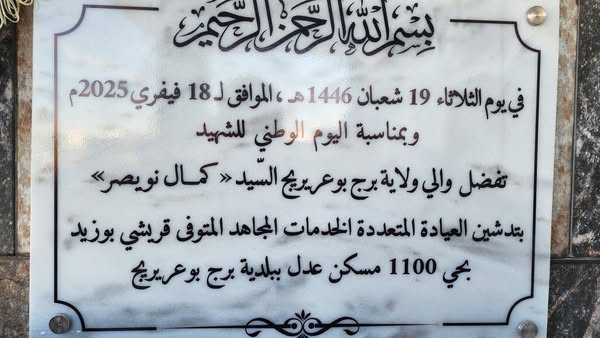 بسم الله الرحمن الرحيم
في يوم الثلاثاء 19 شعبان 1446هـ ، الموافق لـ 18 فيفري 2025م
وبمناسبة اليوم الوطني للشهيد
تفضل والي ولاية برج بوعريريج السّيد « كمال نويصر»
بتدشين العيادة المتعددة الخدمات المجاهد المتوفى قريشي بوزيد
بحي 1100 مسكن عدل ببلدية برج بوعريريج